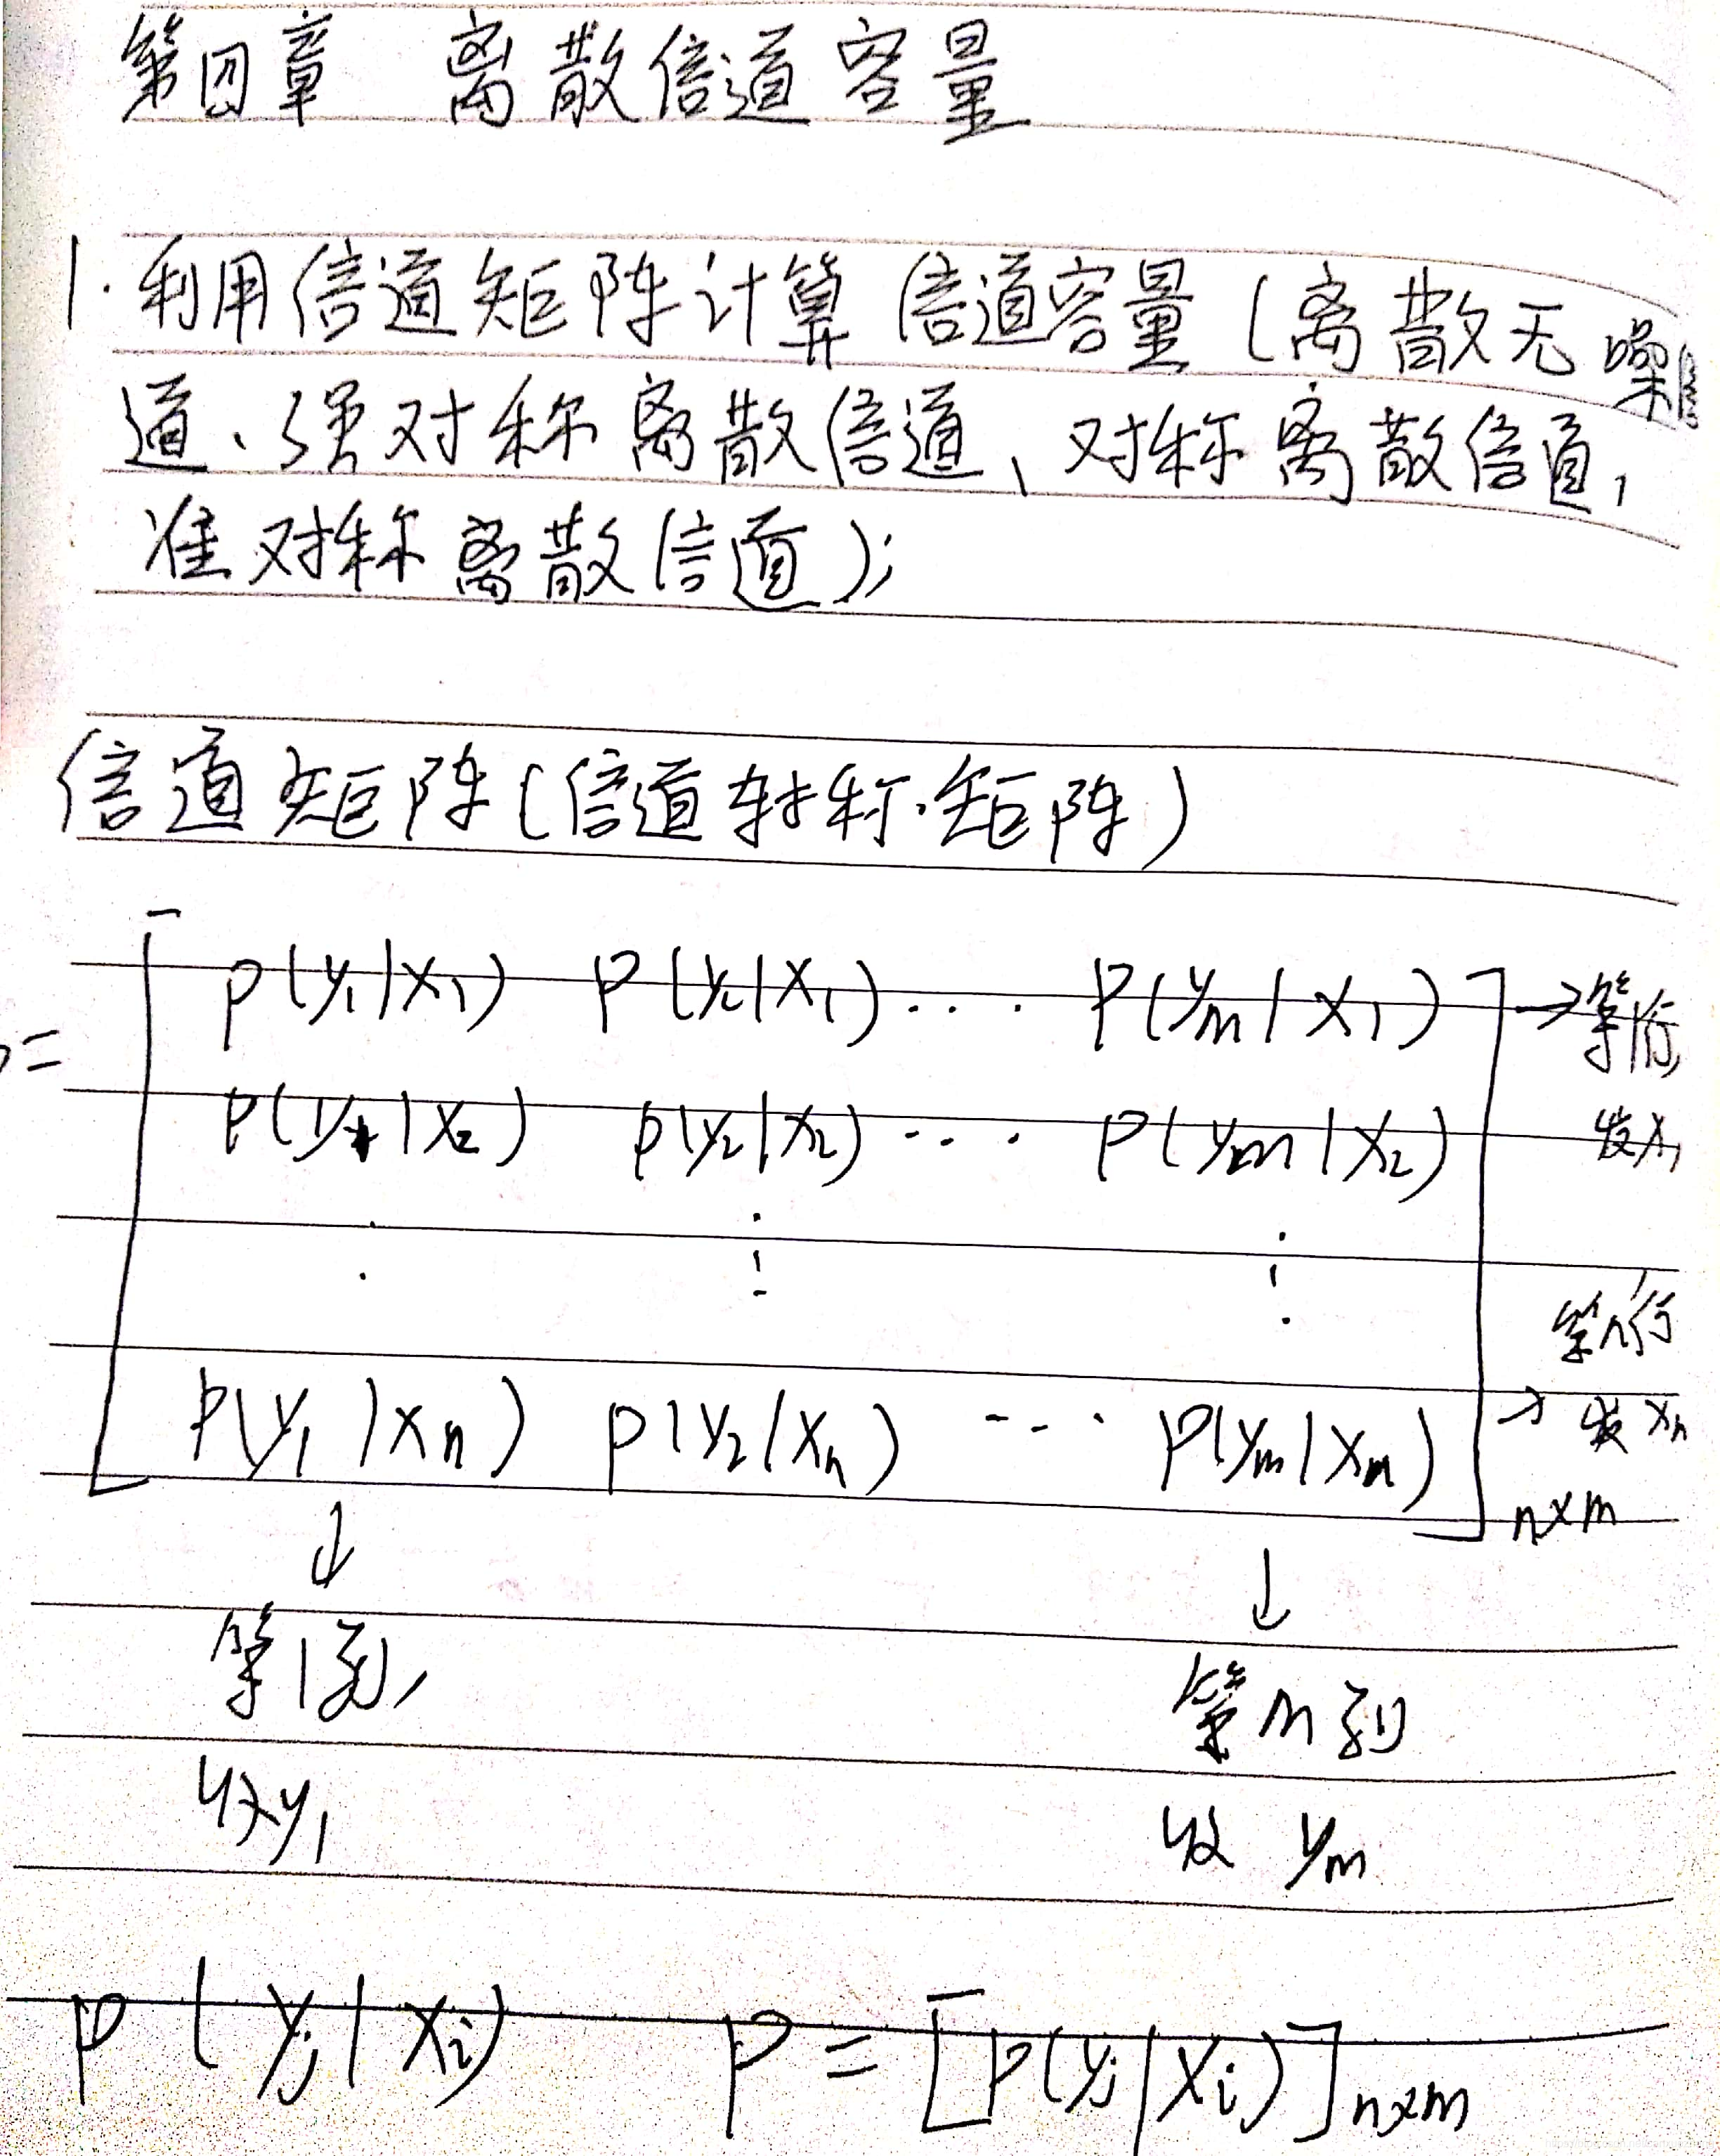 第四章 离散信道容量
1. 利用信道矩阵计算信道容量(离散无噪
道、强对称离散信道、对称离散信道,
准对称离散信道);
信道矩阵(信道转移矩阵)
= [ P(y₁|x₁) P(y₂|x₁) ... P(yₘ|x₁) ] → 第1行
P(y₁|x₂) P(y₂|x₂) ... P(yₘ|x₂) 发x₁
第n行
P(y₁|xₙ) P(y₂|xₙ) ... P(yₘ|xₙ) → 发xₙ
n×m
↓ ↓
第1列 第m列
收y₁ 收 yₘ
P(yⱼ|xᵢ) P = [P(yⱼ|xᵢ)]n×m